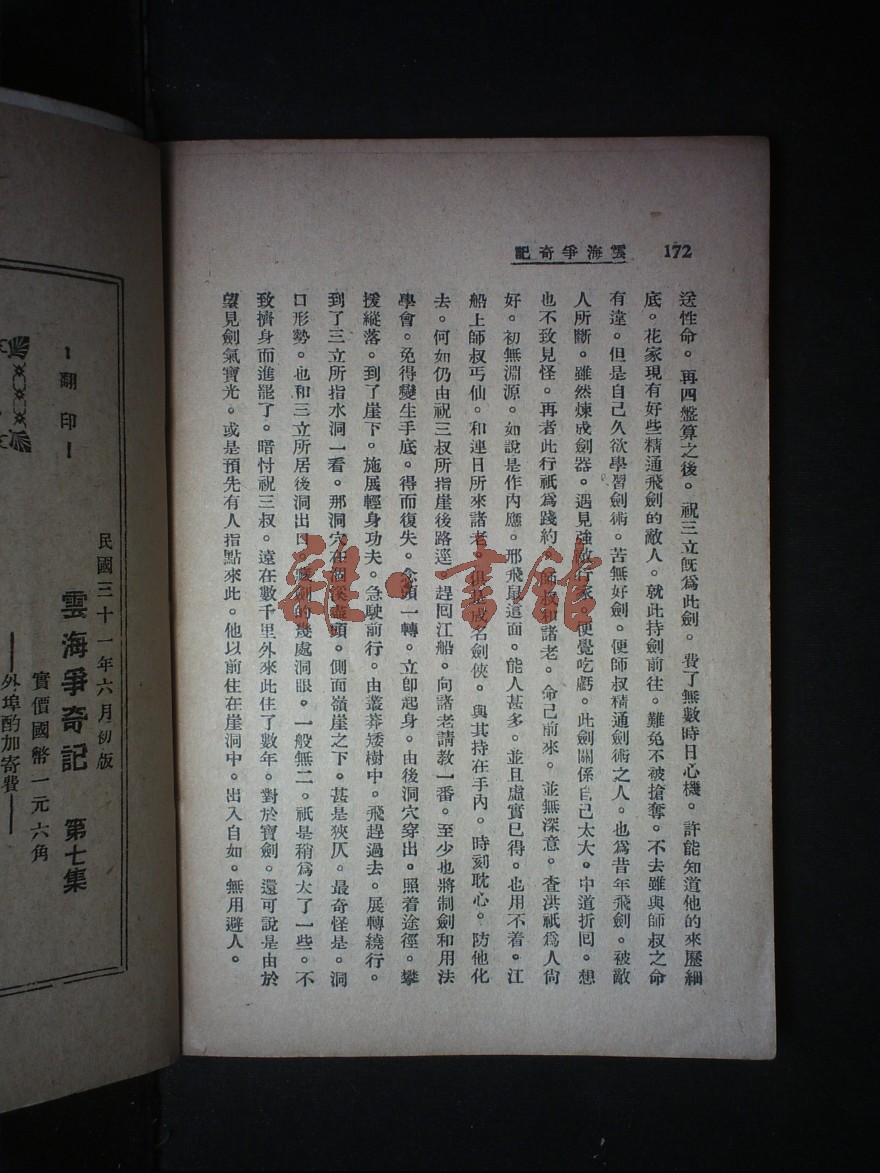 172
雲海爭奇記
送性命。再四盤算之後。祝三立既爲此劍。費了無數時日心機。許能知道他的來歷細
底。花家現有好些精通飛劍的敵人。就此持劍前往。難免不被搶奪。不去雖與師叔之命
有違。但是自己久欲學習劍術。苦無好劍。便師叔精通劍術之人。也爲昔年飛劍。被敵
人所斷。雖然煉成劍器。遇見強敵行家。便覺吃虧。此劍關係自己太大。中道折囘。想
也不致見怪。再者此行祇爲踐約。師叔和諸老。命己前來。並無深意。查洪祇爲人尙
好。初無淵源。如說是作內應。邢飛鼠這面。能人甚多。並且虛實已得。也用不着。江
船上師叔丐仙。和連日所來諸老。俱是成名劍俠。與其持在手內。時刻耽心。防他化
去。何如仍由祝三叔所指崖後路逕。趕囘江船。向諸老請教一番。至少也將制劍和用法
學會。免得變生手底。得而復失。念頭一轉。立卽起身。由後洞穴穿出。照着途徑。攀
援縱落。到了崖下。施展輕身功夫。急駛前行。由叢莽矮樹中。飛趕過去。展轉繞行。
到了三立所指水洞一看。那洞穴在溪盡頭。側面嶺崖之下。甚是狹仄。最奇怪是。洞
口形勢。也和三立所居後洞出口。藏劍的幾處洞眼。一般無二。祇是稍爲大了一些。不
致擠身而進罷了。暗忖祝三叔。遠在數千里外來此住了數年。對於寶劍。還可說是由於
望見劍氣寶光。或是預先有人指點來此。他以前住在崖洞中。出入自如。無用避人。
雜·書館
翻印
民國三十一年六月初版
雲海爭奇記 第七集
實價國幣一元六角
外埠酌加寄費